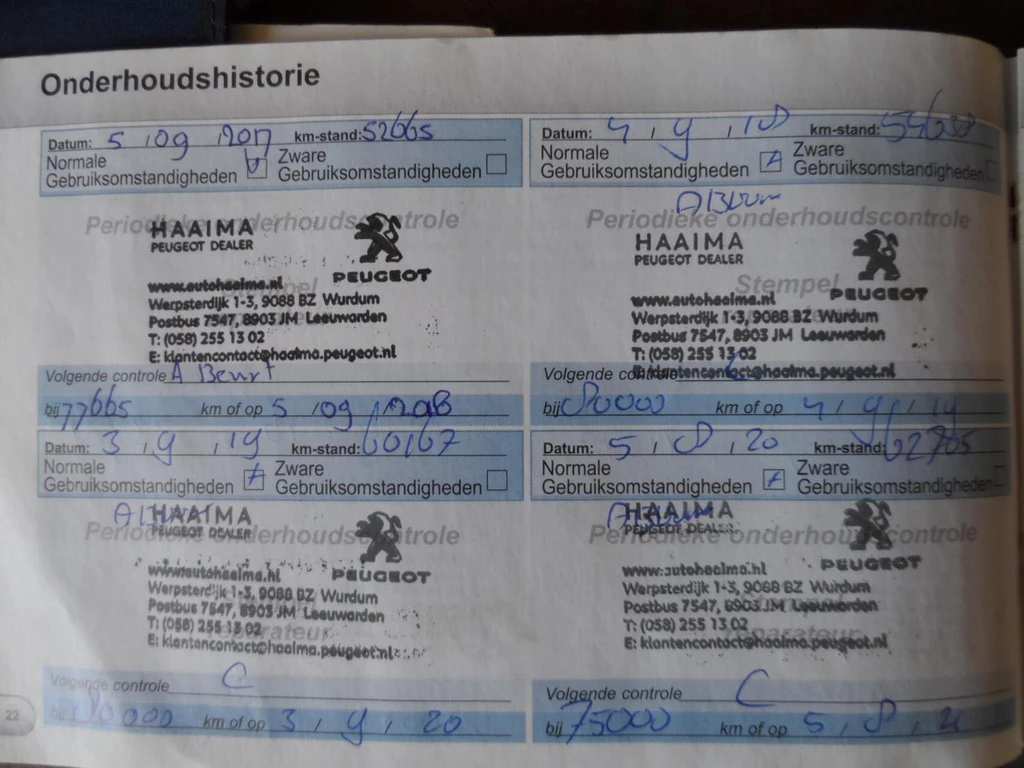 Onderhoudshistorie
Datum: 5 / 09 / 2017 km-stand: 52665
Normale Gebruiksomstandigheden Zware Gebruiksomstandigheden
Periodieke onderhoudscontrole
HAAIMA
PEUGEOT DEALER
PEUGEOT
Stempel
www.autohaaima.nl
Werpsterdijk 1-3, 9088 BZ Wurdum
Postbus 7547, 8903 JM Leeuwarden
T: (058) 255 13 02
E: klantencontact@haaima.peugeot.nl
Volgende controle A Beurt
bij 77665 km of op 5 / 09 /
Datum: 4 / 9 / 18 km-stand:
Normale Gebruiksomstandigheden Zware Gebruiksomstandigheden
Periodieke onderhoudscontrole
HAAIMA
PEUGEOT DEALER
PEUGEOT
Stempel
www.autohaaima.nl
Werpsterdijk 1-3, 9088 BZ Wurdum
Postbus 7547, 8903 JM Leeuwarden
T: (058) 255 13 02
E: klantencontact@haaima.peugeot.nl
Volgende controle
bij 80000 km of op 4 / 9 / 19
Datum: 3 / 9 / 19 km-stand: 60167
Normale Gebruiksomstandigheden Zware Gebruiksomstandigheden
Periodieke onderhoudscontrole
HAAIMA
PEUGEOT DEALER
PEUGEOT
www.autohaaima.nl
Werpsterdijk 1-3, 9088 BZ Wurdum
Postbus 7547, 8903 JM Leeuwarden
T: (058) 255 13 02
E: klantencontact@haaima.peugeot.nl
Volgende controle C
bij 80000 km of op 3 / 9 / 20
Datum: 5 / 8 / 20 km-stand: 62765
Normale Gebruiksomstandigheden Zware Gebruiksomstandigheden
Periodieke onderhoudscontrole
HAAIMA
PEUGEOT DEALER
PEUGEOT
www.autohaaima.nl
Werpsterdijk 1-3, 9088 BZ Wurdum
Postbus 7547, 8903 JM Leeuwarden
T: (058) 255 13 02
E: klantencontact@haaima.peugeot.nl
Volgende controle C
bij 75000 km of op 5 / 8 /
22